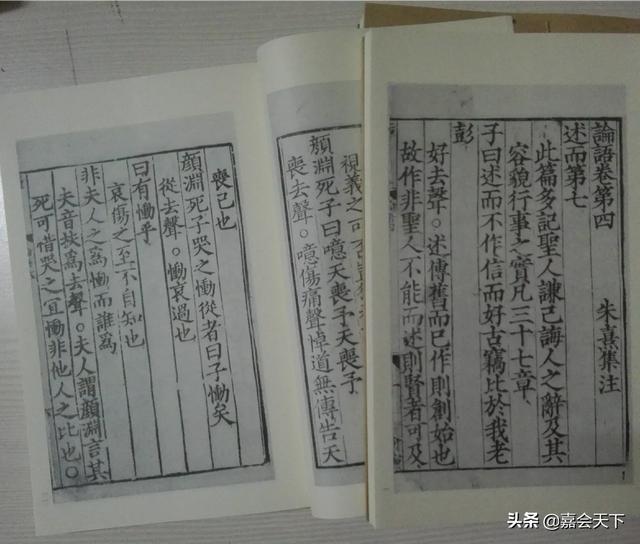 論語卷第四 朱熹集注
述而第七
此篇多記聖人謙己誨人之辭及其
容貌行事之實凡三十七章
子曰述而不作信而好古竊比於我老
彭
好去聲。述傳舊而已作則創始也
故作非聖人不能而述則賢者可及
視義之可
顏淵死子曰噫天喪予天喪予
喪去聲。噫傷痛聲悼道無傳若天
喪己也
顏淵死子哭之慟從者曰子慟矣
從去聲。慟哀過也
曰有慟乎
哀傷之至不自知也
非夫人之為慟而誰為
夫音扶為去聲。夫人謂顏淵言其
死可惜哭之宜慟非他人之比也。
头条 @嘉会天下